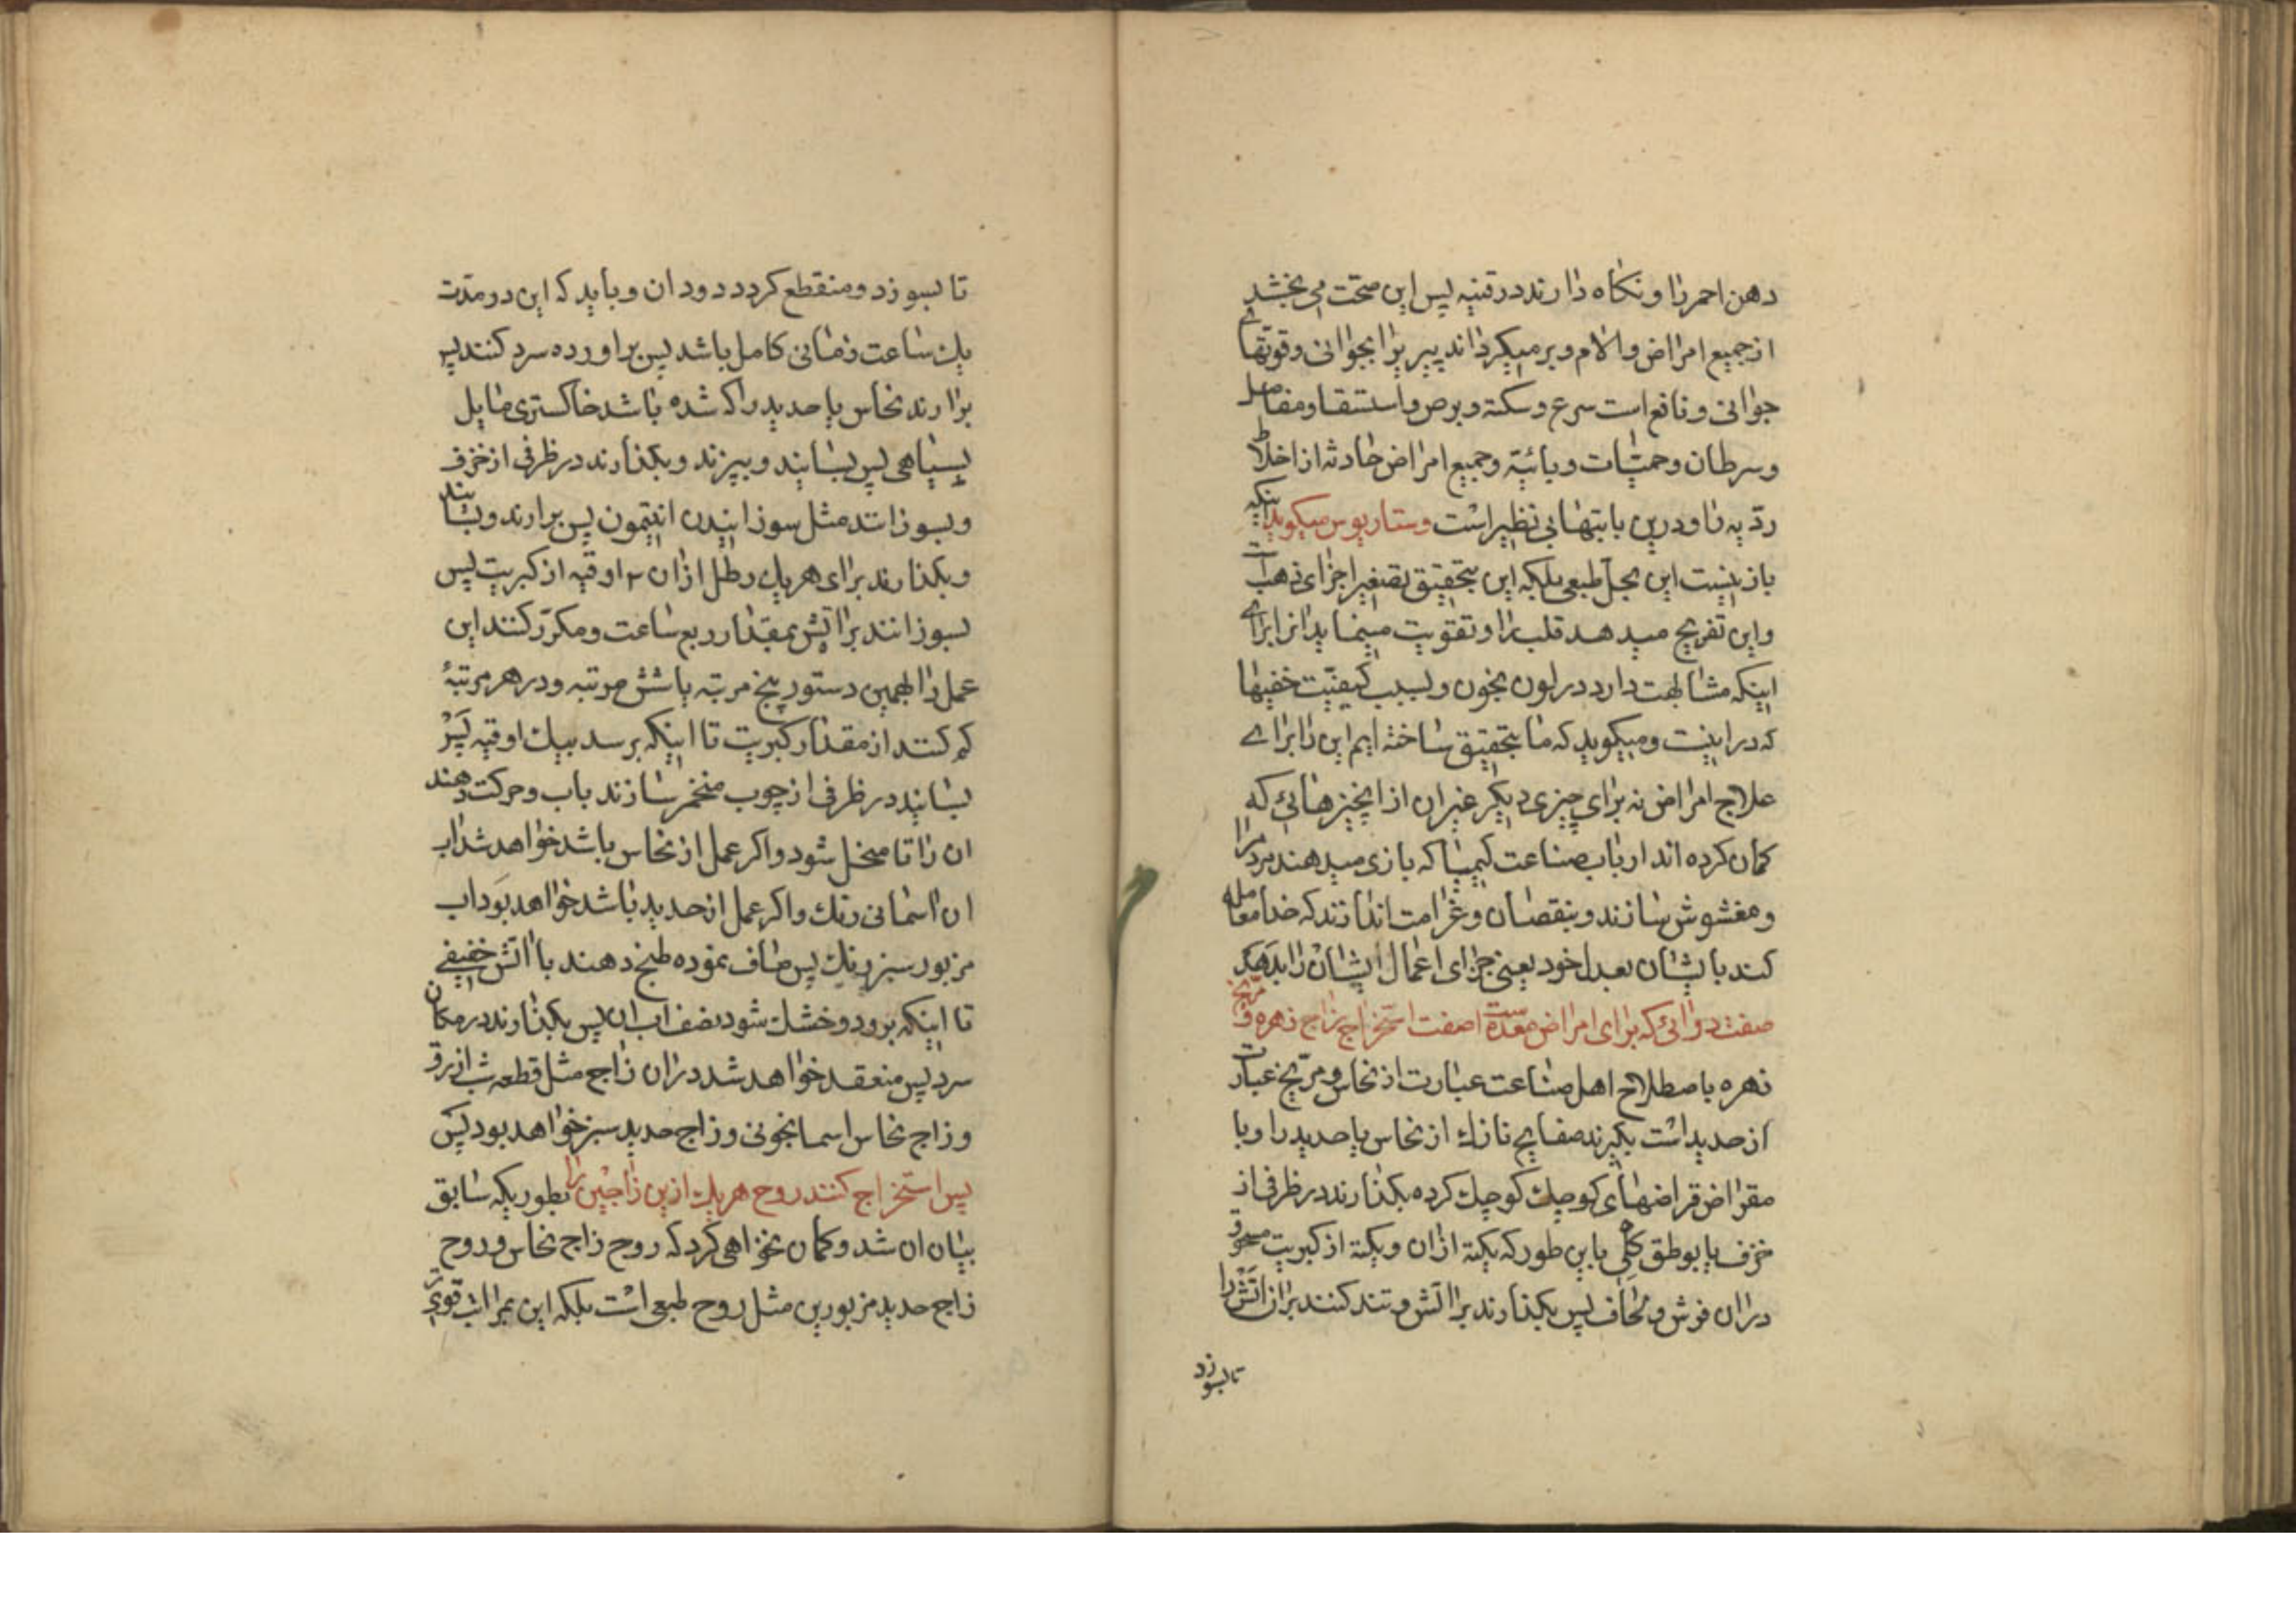 دهن احمر را و نکاه دارند در قنینه پس این صحت می بخشد
از جمیع امراض و الام و بر میکرداند پیر را بجوانی و قوتهای
جوانی و نافع است صرع و سکته و برص و استسقا و مفاصل
و سرطان و حمیات وبائیة و جمیع امراض حادثه از اخلاط
ردّیه را و درین بابتها بی نظیر است و ستاریوس میکوید اینکه
باز نیست این بحلّ طبعی بلکه این بتحقیق تصغیر اجزای ذهب است
و این تفریح میدهد قلب را و تقویت مینماید انرا برای
اینکه مشابهت دارد در لون بخون و بسبب کیفیّت خفیها
که در اینست و میکوید که ما بتحقیق ساخته ایم این را برای
علاج امراض نه برای چیزی دیکر غیر ان از انچیزهائی که
کمان کرده اند ارباب صناعت کیمیا که بازی میدهند مردم را
و مغشوش سازند و بنقصان و غرامت اندازند که خدا معامله
کند با یشان بعدل خود یعنی جزای اعمال ایشان را بدهد
صفت دوائی که برای امراض معده است صفت استخراج زاج زهره و مریخ
زهره باصطلاح اهل صناعت عبارت از نحاس و مریخ عبارت
از حدید است بکیرند صفایح نازك از نحاس یا حدید را و با
مقراض قراضهای کوچك کوچك کرده بکذارند در ظرفی از
خزف یا بوطق کلی باین طور که یکتة ازان و یکتة از کبریت مسحوق
دران فرش و لحاف پس بکذارند بر اتش و تند کنند بران اتش را
تا بسوزد
تا بسوزد و منقطع کردد دود ان و باید که این در مدّت
یك ساعت زمانی کامل باشد پس براورده سرد کنند پس
برارند نحاس یا حدید را که شده باشد خاکستری مایل
بسیاهی پس بسایند و بپزند و بکذارند در ظرفی از خزف
و بسوزانند مثل سوزانیدن انتیمون پس برارند و بسایند
و بکذارند برای هر یك رطل ازان ۲ اوقیه از کبریت پس
بسوزانند بر اتش بمقدار ربع ساعت و مکرّر کنند این
عمل را بهمین دستور پنج مرتبه یا شش مرتبه و در هر مرتبهٔ
کم کنند از مقدار کبریت تا اینکه برسد بیك اوقیه پس
بسایند در ظرفی از چوب منخمر سازند باب و حرکت دهند
ان را تا منحل شود و اکر عمل از نحاس باشد خواهد شد اب
ان اسمانی رنك و اکر عمل از حدید باشد خواهد بود اب
مزبور سبز رنك پس صاف نموده طبخ دهند با اتش خفیفی
تا اینکه برود و خشك شود نصف اب ان پس بکذارند در مکان
سرد پس منعقد خواهد شد دران زاج مثل قطعه شب ازرق
و زاج نحاس اسمانجونی و زاج حدید سبز خواهد بود پس
پس استخراج کنند روح هر یك ازین زاجین را بطوریکه سابق
بیان ان شد و کمان نخواهی کرد که روح زاج نحاس و روح
زاج حدید مزبورین مثل روح طبعی است بلکه این بمراتب قوی تر